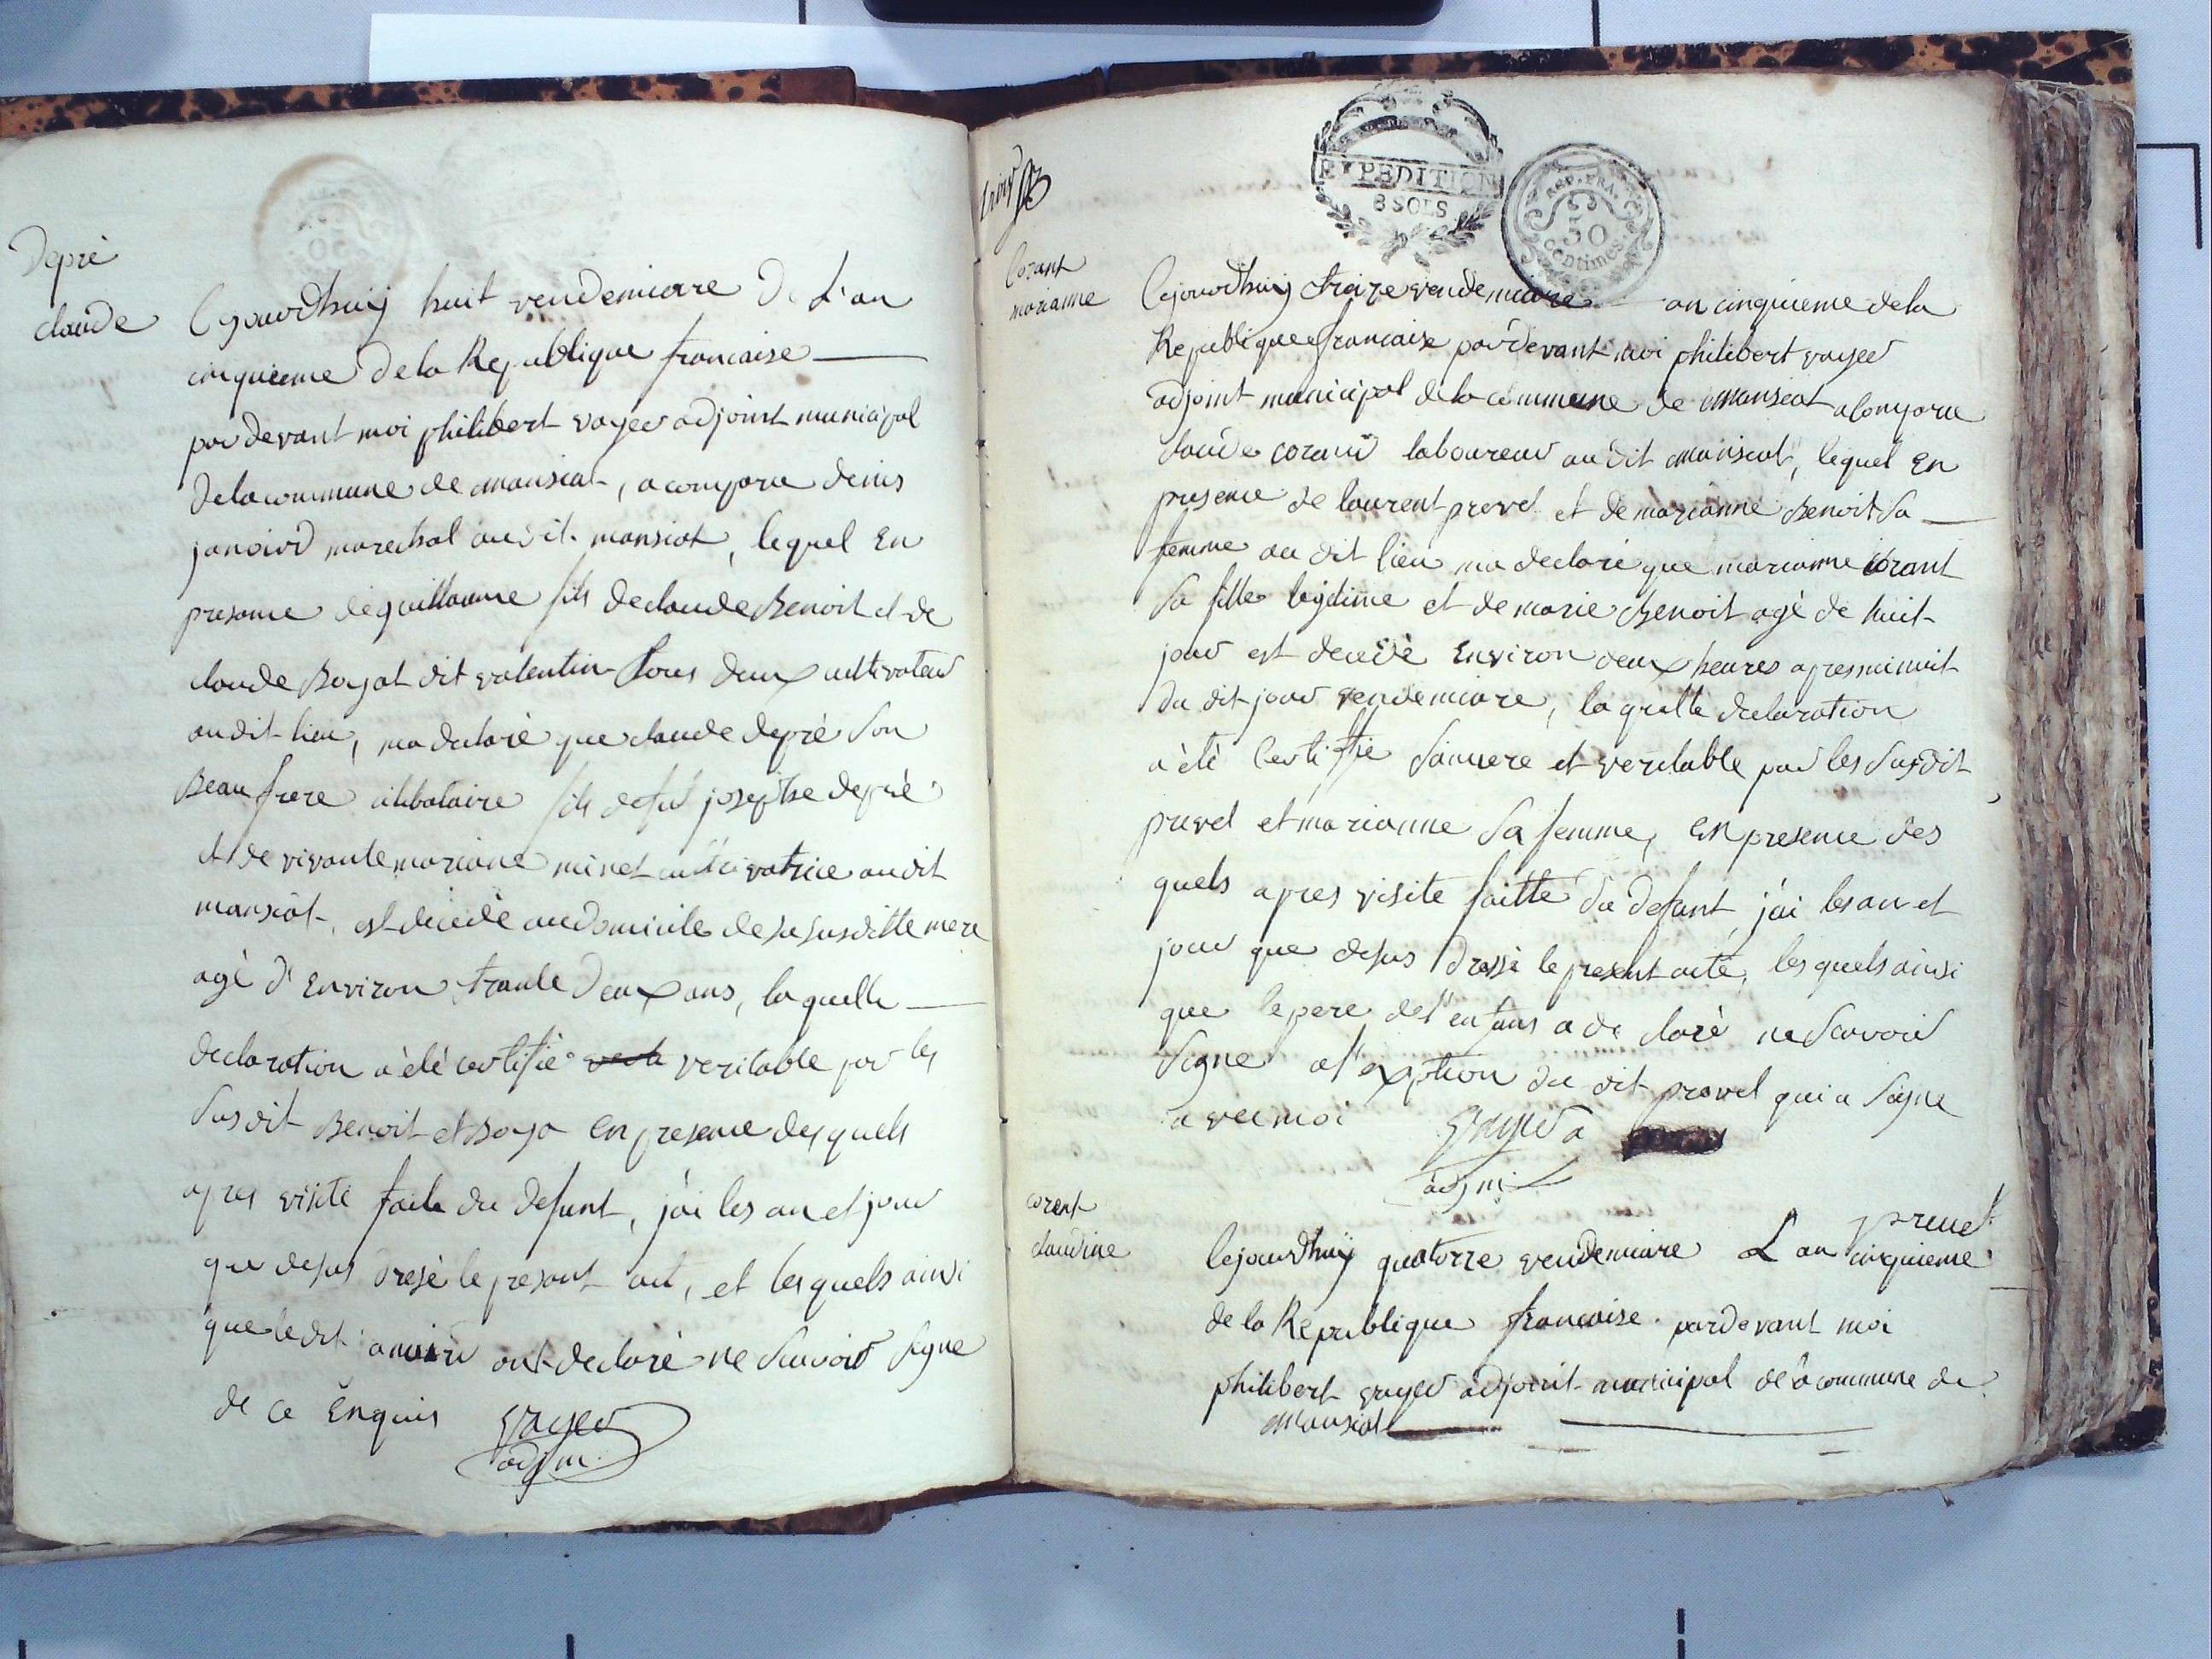 Depré
claude
Cejourdhuiy huit vendemiaire De L'an
cinquieme De la Republique francaise
par devant moi philibert voyer adjoint municipal
De la commune de mansiat, a comparu denis
janoird marechal audit mansiat, lequel En
presance de guillaume fils de claude Benoit et de
claude Boyat dit valentin tous deux cultivateur
audit lieu, ma declaré que claude depré son
Beau frere célibataire fils defut josepthe depré
et de vivante mariane minet cultivatrice audit
mansiat, est décédé au domicile de sa susditte mere
agé d'Environ trante Deux ans, laquelle
declaration a été certifié veritable par les
susdit Benoit et Boya En presence desquels
apres visite faite du defunt, j'ai les an et jour
que desus dresé le present acte, et lesquels ainsi
que ledit anoird ont declaré ne scavoir signe
de ce Enquis voyer
adj m.
Corant
marianne
Cejourdhuiy treize vendemiaire an cinquieme de la
Republique francaise pardevant moi philibert voyer
adjoint municipal de la commune de mansiat a comparu
claude corand laboureur audit mansiat, lequel En
presence de laurent prevel et de marianne Benoit sa
femme au dit lieu ma declaré que marianne corant
sa fille legitime et de marie Benoit agé de huit
jour est decedé Environ deux heures apres minuit
du dit jour vendemiaire, laquelle declaration
a été Certifié sincere et veritable par les susdit
prevel et marianne sa femme, En presence des
quels apres visite faitte du defunt j'ai les an et
jour que desus dressé le present acte, lesquels ainsi
que le pere de l'enfans a declaré ne scavoir
signe a l'exption du dit prevel qui a signe
avec moi voyer
adj m
prevel
corent
claudine
Cejourdhuiy quatorze vendemiaire L'an cinquieme
de la Republique francaise pardevant moi
philibert voyer adjoint municipal de la commune de
mansiat
EXPEDITION
8 SOLS
REP. FRA.
50
centimes.